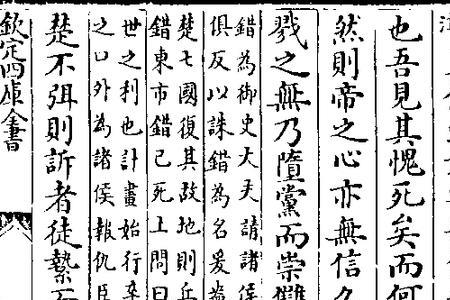 也吾見其愧死矣而何
然則帝之心亦無信久
戮之無乃墮黨而崇讎
錯為御史大夫請諸侯
俱反以誅錯為名爰盎
楚七國復其故地則兵
錯東市錯已死上問曰
世之利也計畫始行卒
之口外為諸侯報仇臣
楚不弭則訴者徒縶而
欽定四庫全書